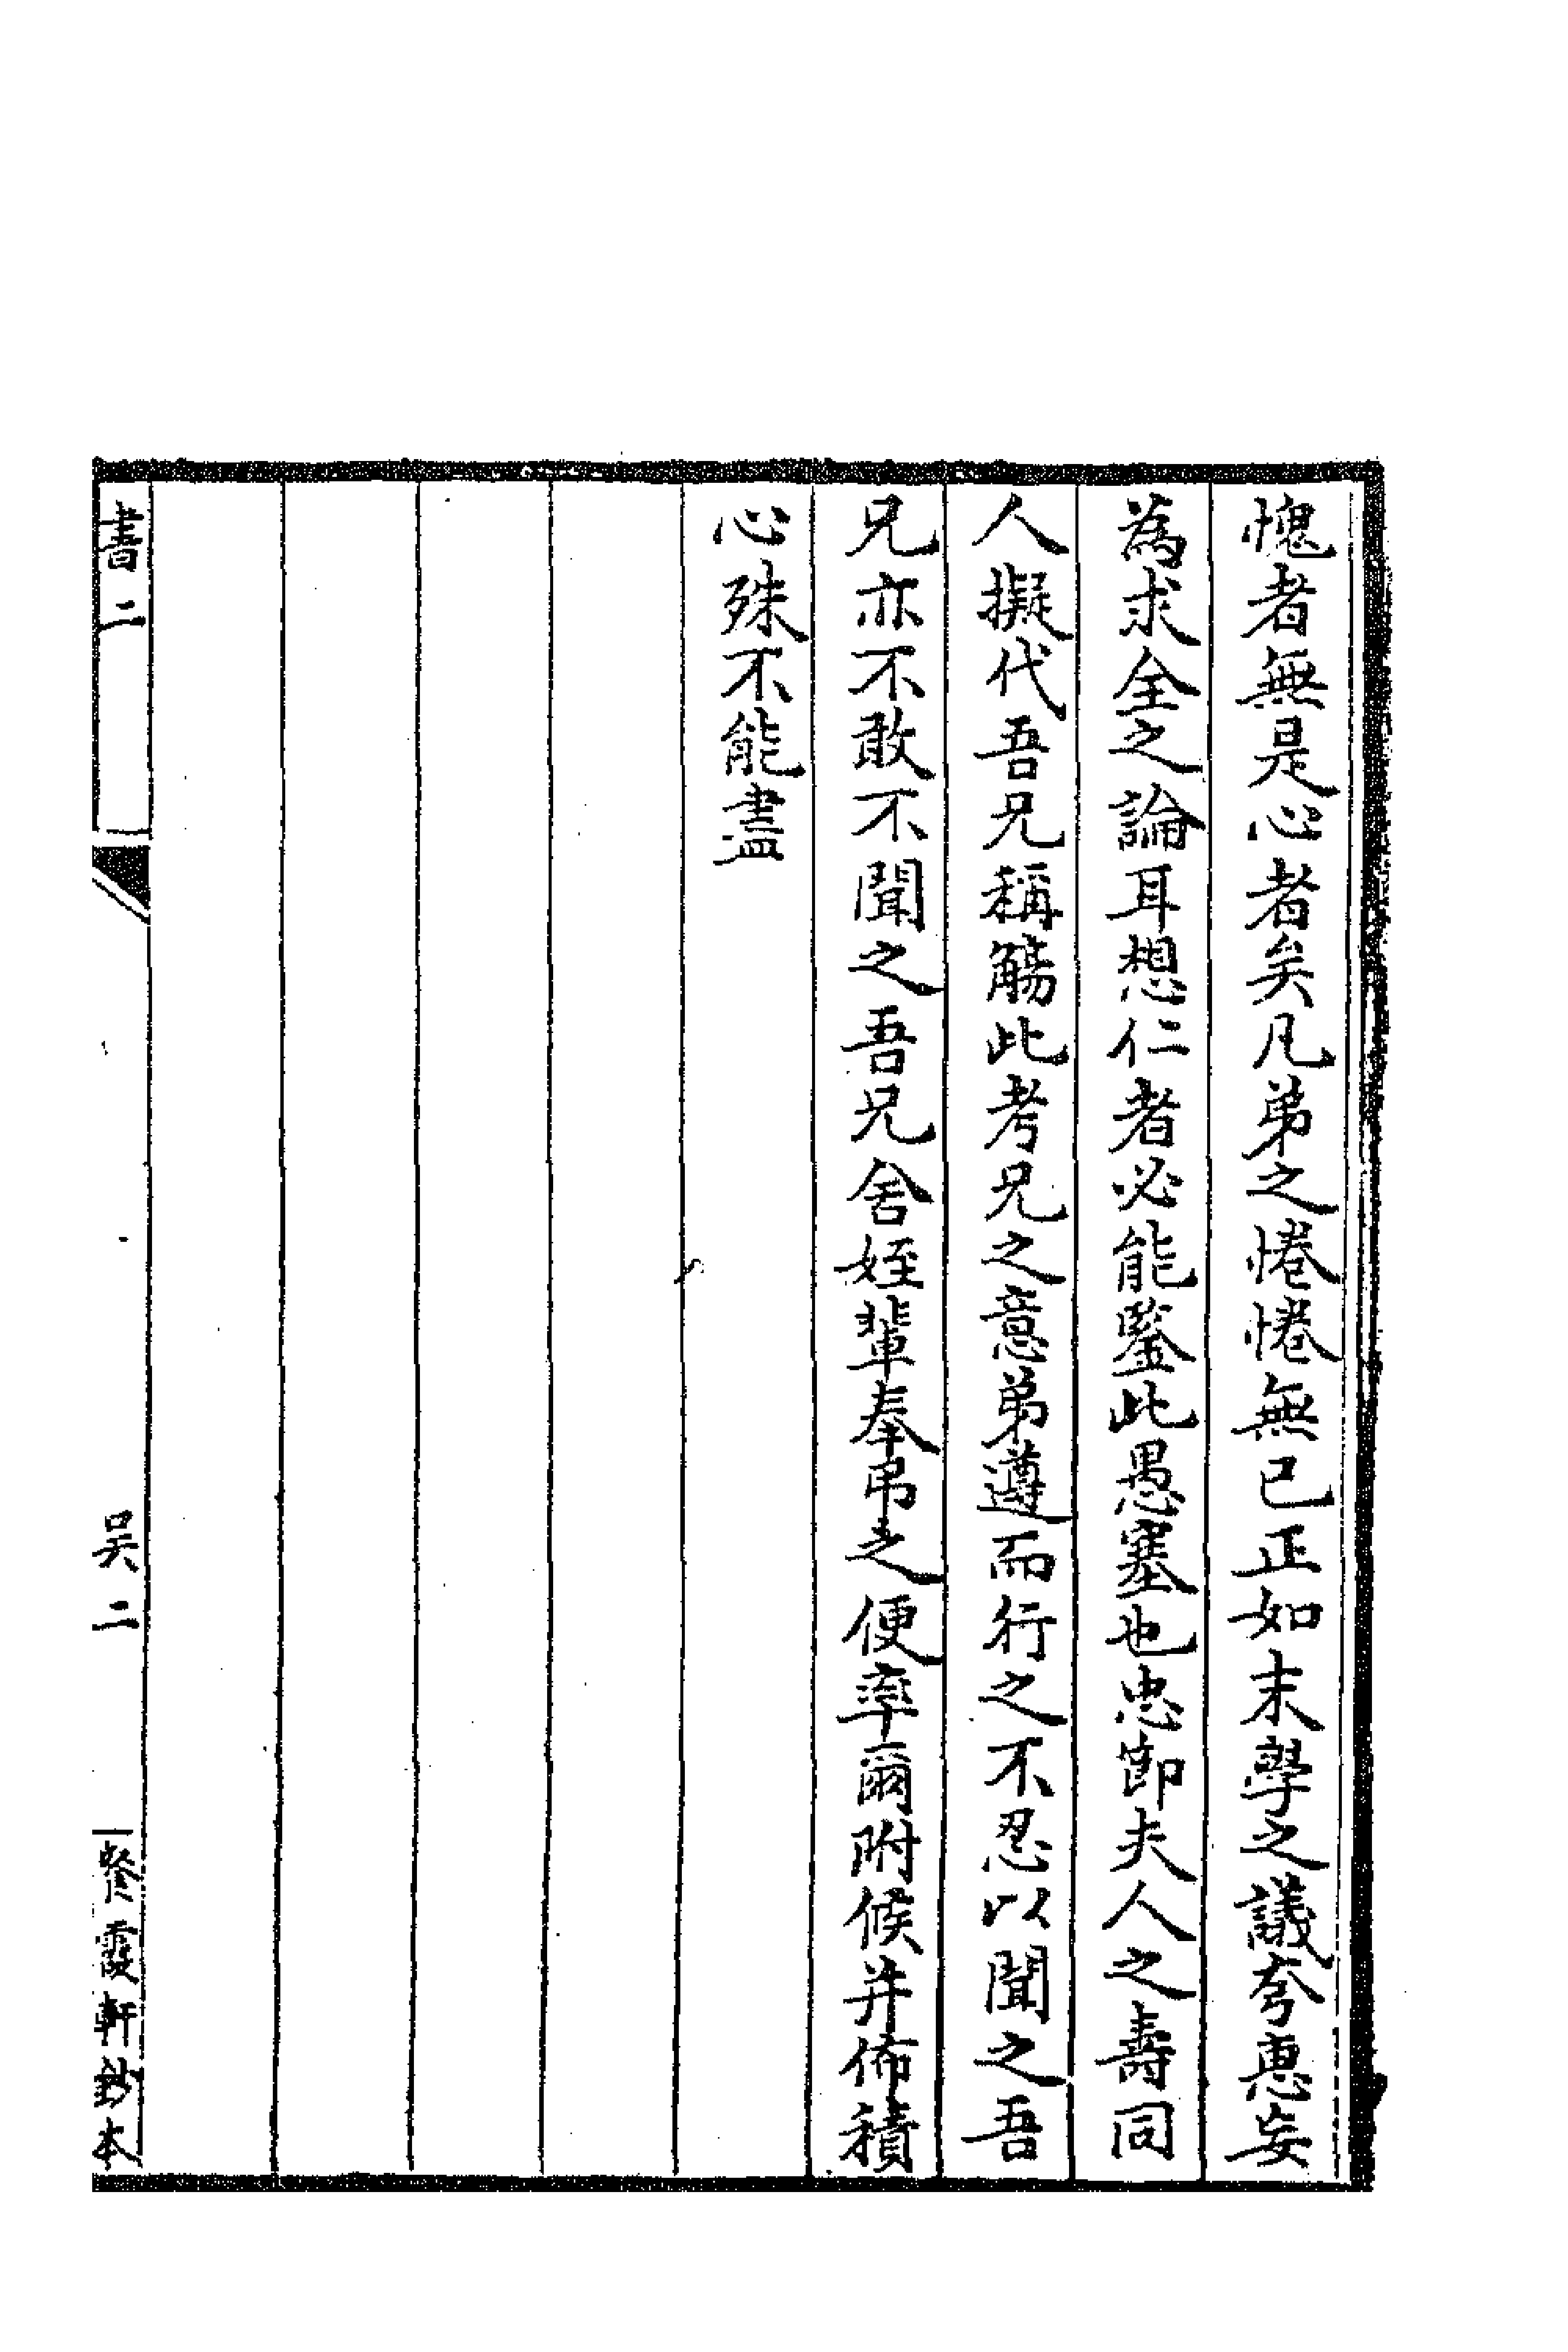 愧者無是心者矣凡弟之惓惓無已正如末學之議夸惠妄
為求全之論耳想仁者必能鑒此愚蹇也忠節夫人之壽同
人擬代吾兄稱觴此考兄之意弟遵而行之不忍以聞之吾
兄亦不敢不聞之吾兄舍姪輩奉弔之便率爾附候并佈積
心殊不能盡
書二
吴二
餐霞軒鈔本